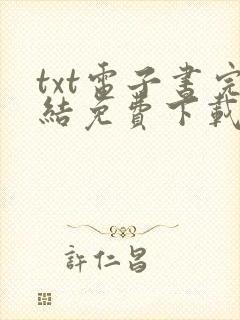 txt電子書完
結免費下載
許仁昌